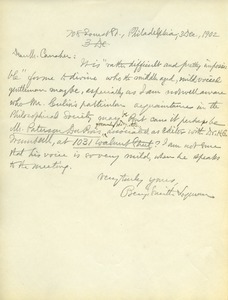 Locust St., Philadelphia, 3 Dec., 1902.
Dear Mr. Canaher:
It is "rather difficult and pretty impossi-
ble" for me to divine who the middle aged, mild voiced
gentleman may be, especially as I am not well aware
who Mr. Culin's particular acquaintances in the
Philosophical Society may be. But can it perhaps be
Mr. Patterson Du Bois, formerly associated as editor with Dr. H. C.
Trumbull, at 1031 Walnut Street? I am not sure
that his voice is so very mild, when he speaks
to the meeting.
Very truly yours,
Benj. Smith Lyman.